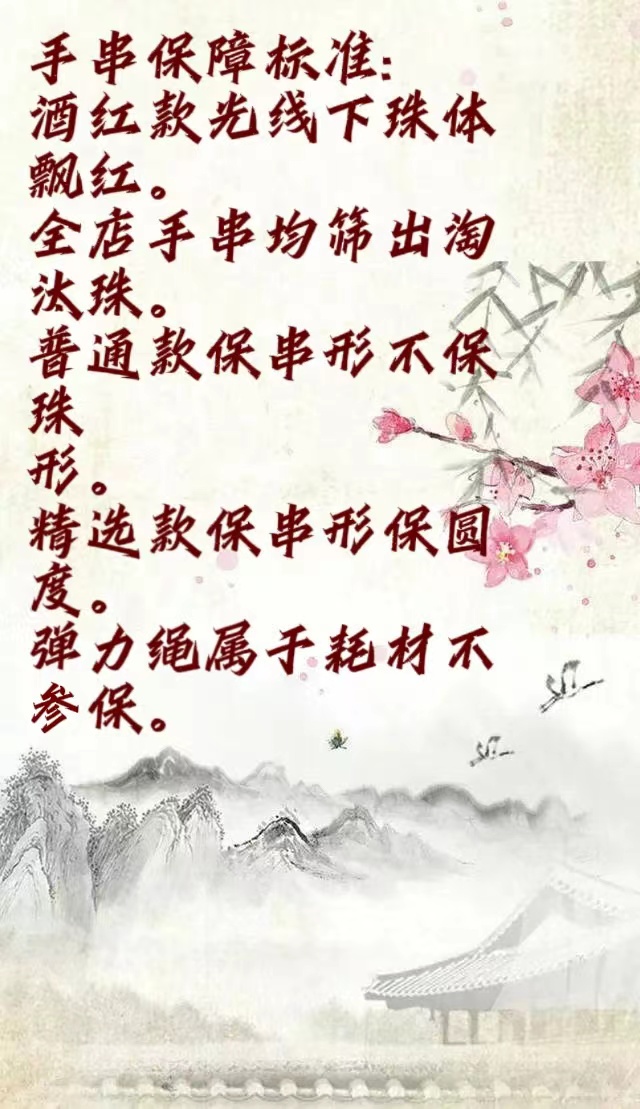 手串保障标准:
酒红款光线下珠体
飘红。
全店手串均筛出淘
汰珠。
普通款保串形不保
珠
形。
精选款保串形保圆
度。
弹力绳属于耗材不
参保。